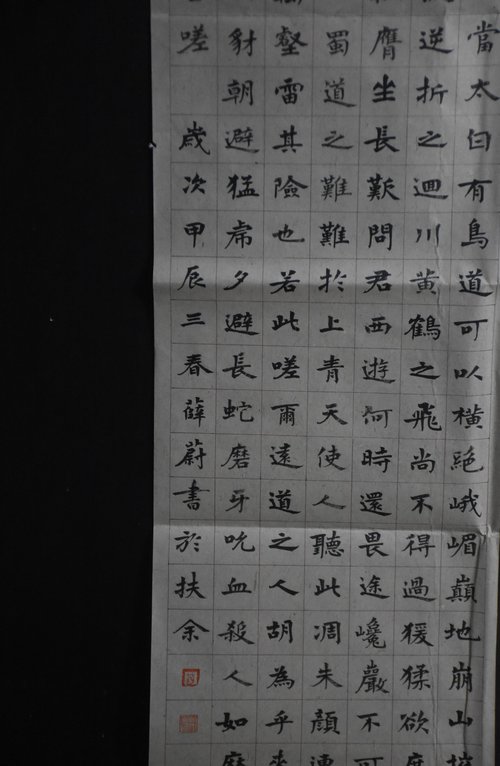 當太白有鳥道可以橫絕峨嵋巔地崩山
逆折之迴川黃鶴之飛尚不得過猨猱欲度
膺坐長歎問君西遊何時還畏途巉巖不可
蜀道之難難於上青天使人聽此凋朱顏連
壑雷其險也若此嗟爾遠道之人胡為乎來
豺朝避猛虎夕避長蛇磨牙吮血殺人如麻
嗟
歲次甲辰三春薛蔚書於扶余